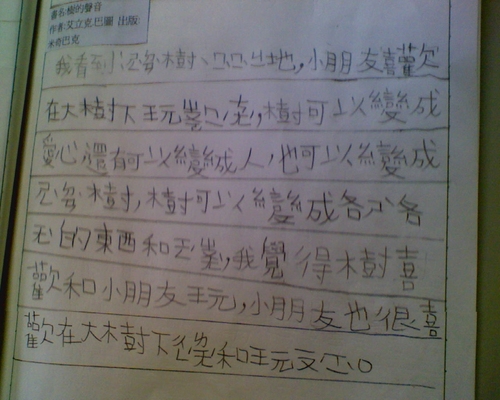 書名:樹的聲音
作者:艾立克.巴圖 出版
米奇巴克
我看到 樹、 地,小朋友喜歡
在大樹下玩 ,樹可以變成
愛心還有可以變成人,也可以變成
樹,樹可以變成各式各
的東西和 ,我覺得樹喜
歡和小朋友玩,小朋友也很喜
歡在大樹下 和玩 。